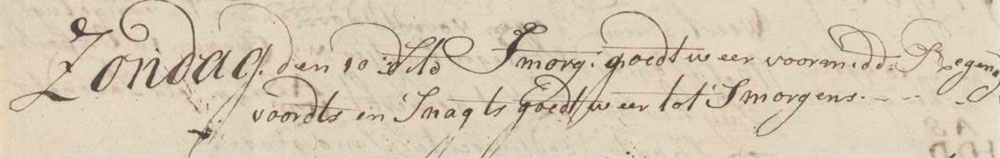 Zondag. den 10: dito Smorg: goedt weer voormidd: Regenag
voordts en Snagts goedt weer tot Smorgens. - - -